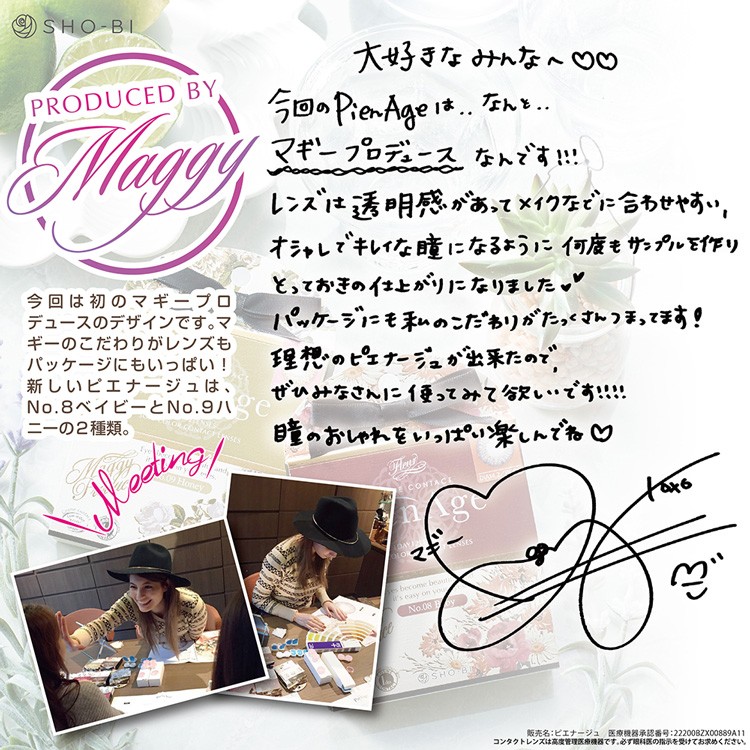 SHO-BI
PRODUCED BY
Maggy
大好きなみんなへ♡♡
今回のPienAgeは..なんと..
マギープロデュースなんです!!!
レンズは透明感があってメイクなどに合わせやすい,
オシャレでキレイな瞳になるように何度もサンプルを作り
とっておきの仕上がりになりました♥♥
パッケージにも私のこだわりがたっくさんつまってます!
理想のピエナージュが出来たので,
ぜひみなさんに使ってみて欲しいです!!!!
瞳のおしゃれをいっぱい楽しんでね♡
マギー
xoxo
今回は初のマギープロ
デュースのデザインです。マ
ギーのこだわりがレンズも
パッケージにもいっぱい!
新しいピエナージュは、
No.8ベイビーとNo.9ハ
ニーの2種類。
Meeting
Fleur
CONTACT
No.09 Honey
No.08 Baby
SHO-BI
販売名:ピエナージュ 医療機器承認番号:22200BZX00889A11
コンタクトレンズは高度管理医療機器です。必ず眼科医の指示を受けてお求めください。